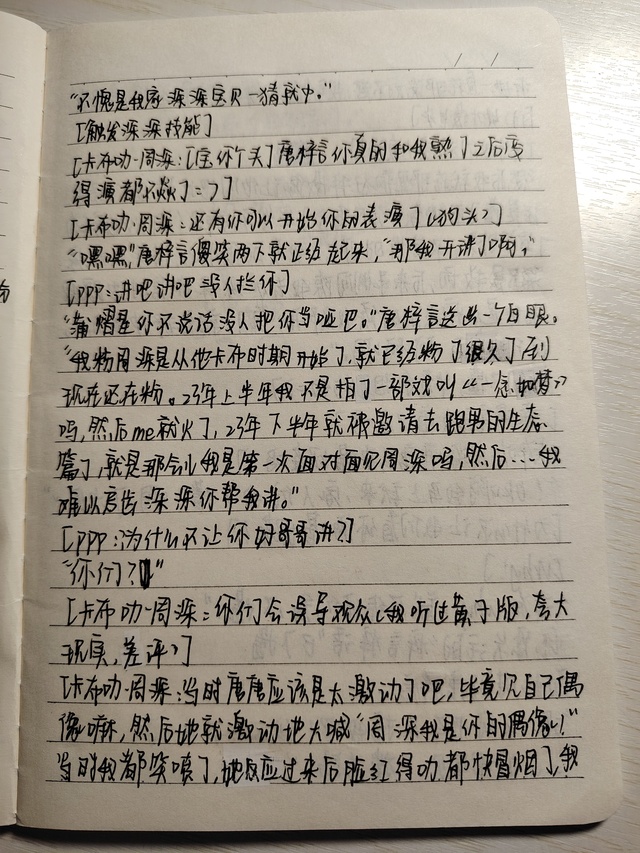 "不愧是我家深深宝贝一猜就中。"
[触发深深技能]
[卡布叻·周深:[宝你个头]唐梓言你真的和我熟了之后变
得演都不演了=7]
[卡布叻·周深:还有你可以开始你的表演了(狗头)]
"嘿嘿,"唐梓言傻笑两下就正经起来,"那我开讲了啊,"
[PPP:讲吧讲吧没人拦你]
"蒲熠星你不说话没人把你当哑巴。"唐梓言送出一个白眼。
"我粉周深是从他卡布时期开始了,就已经粉了很久了到
现在还在粉。23年上半年我不是拍了一部戏叫《一念如梦》
吗,然后me就火了,23年下半年就被邀请去跑男的生态
篇了,就是那会儿我是第一次面对面见周深吗,然后...我
难以启齿深深你帮我讲。"
[PPP:为什么不让你好哥哥讲?]
"你们?"
[卡布叻·周深:你们会误导观众(我听过黄子版,夸大
现实,差评)]
[卡布叻·周深:当时唐唐应该是太激动了吧,毕竟见自己偶
像嘛,然后她就激动地大喊"周深我是你的偶像!"
当时我都笑喷了,她反应过来后脸红得叻都快冒烟了,我